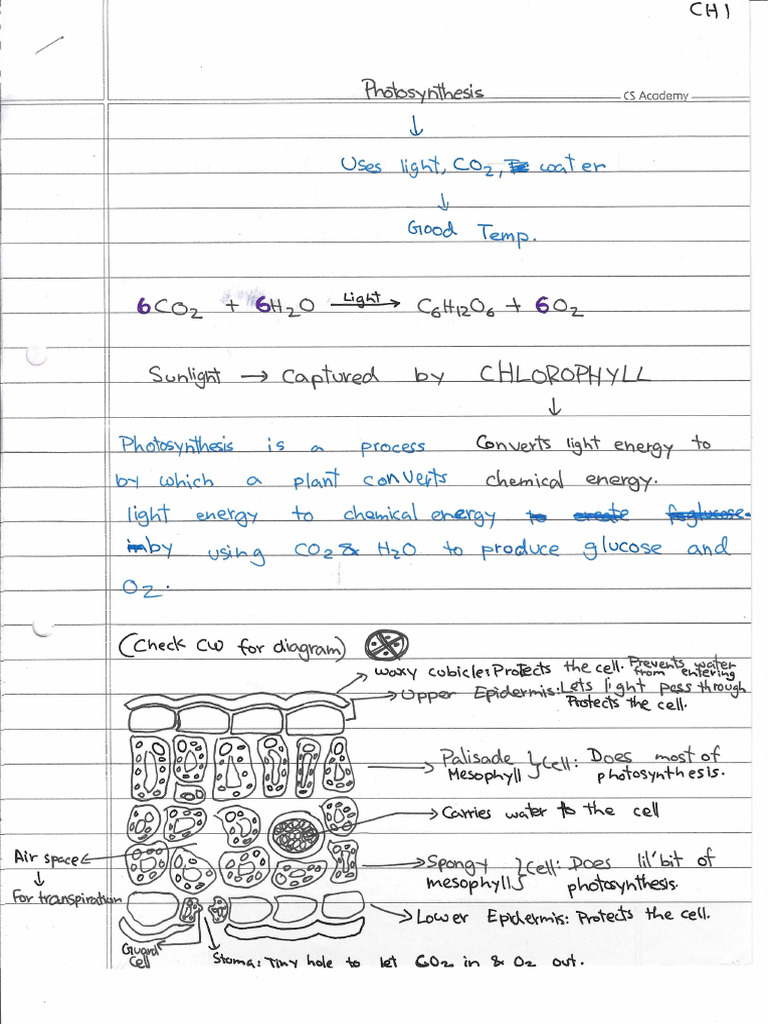 CH 1
Photosynthesis
CS Academy
↓
Uses light, CO2, water
↓
Good Temp.
6CO2 + 6H2O Light → C6H12O6 + 6O2
Sunlight → Captured by CHLOROPHYLL
↓
Photosynthesis is a process
by which a plant converts
Converts light energy to
chemical energy.
light energy to chemical energy to create fo glucose.
in by using CO2 & H2O to produce glucose and
O2.
(Check CW for diagram)
Waxy cubicle: Protects the cell. Prevents water
from entering
Upper Epidermis: Lets light pass through
Protects the cell.
Palisade
Mesophyll } Cell: Does most of
photosynthesis.
Carries water to the cell
Air space
↓
For transpiration
Spongy
mesophyll } Cell: Does lil' bit of
photosynthesis.
Lower Epidermis: Protects the cell.
Guard
Cell
Stoma: Tiny hole to let CO2 in & O2 out.